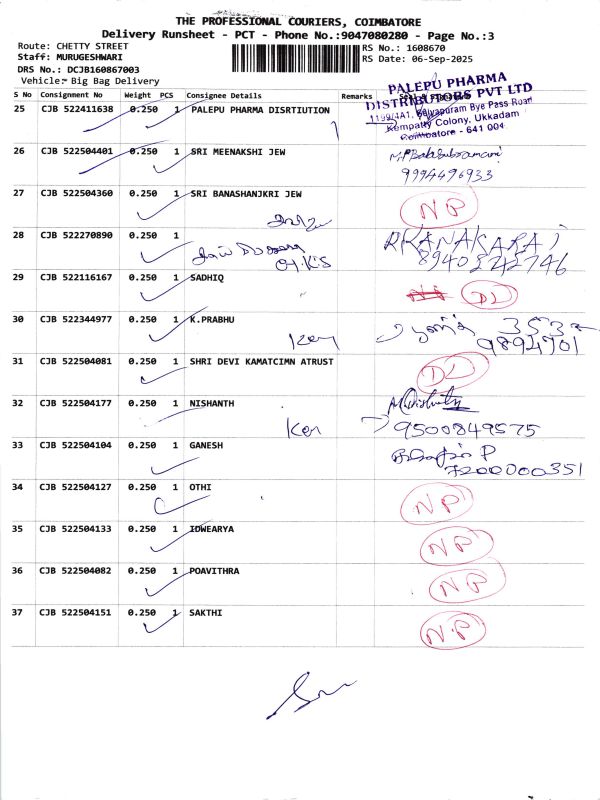 THE PROFESSIONAL COURIERS, COIMBATORE
Delivery Runsheet - PCT - Phone No.:9047080280 - Page No.:3
Route: CHETTY STREET RS No.: 1608670
Staff: MURUGESHWARI RS Date: 06-Sep-2025
DRS No.: DCJB160867003
Vehicle:- Big Bag Delivery
S No Consignment No Weight PCS Consignee Details Remarks
PALEPU PHARMA
DISTRIBUTORS PVT LTD
1199/4A1, Selvapuram Bye Pass Road
Kempatty Colony, Ukkadam
Coimbatore - 641 004
25 CJB 522411638 0.250 1 PALEPU PHARMA DISRTIUTION
26 CJB 522504401 0.250 1 SRI MEENAKSHI JEW
9994496933
27 CJB 522504360 0.250 1 SRI BANASHANJKRI JEW NP
28 CJB 522270890 0.250 1 R KANAKARAJ
8940242746
29 CJB 522116167 0.250 1 SADHIQ DL
30 CJB 522344977 0.250 1 K.PRABHU
9894701
31 CJB 522504081 0.250 1 SHRI DEVI KAMATCIMN ATRUST DL
32 CJB 522504177 0.250 1 NISHANTH
9500849575
33 CJB 522504104 0.250 1 GANESH
7200000351
34 CJB 522504127 0.250 1 OTHI NP
35 CJB 522504133 0.250 1 IDWEARYA NP
36 CJB 522504082 0.250 1 POAVITHRA NP
37 CJB 522504151 0.250 1 SAKTHI N.P